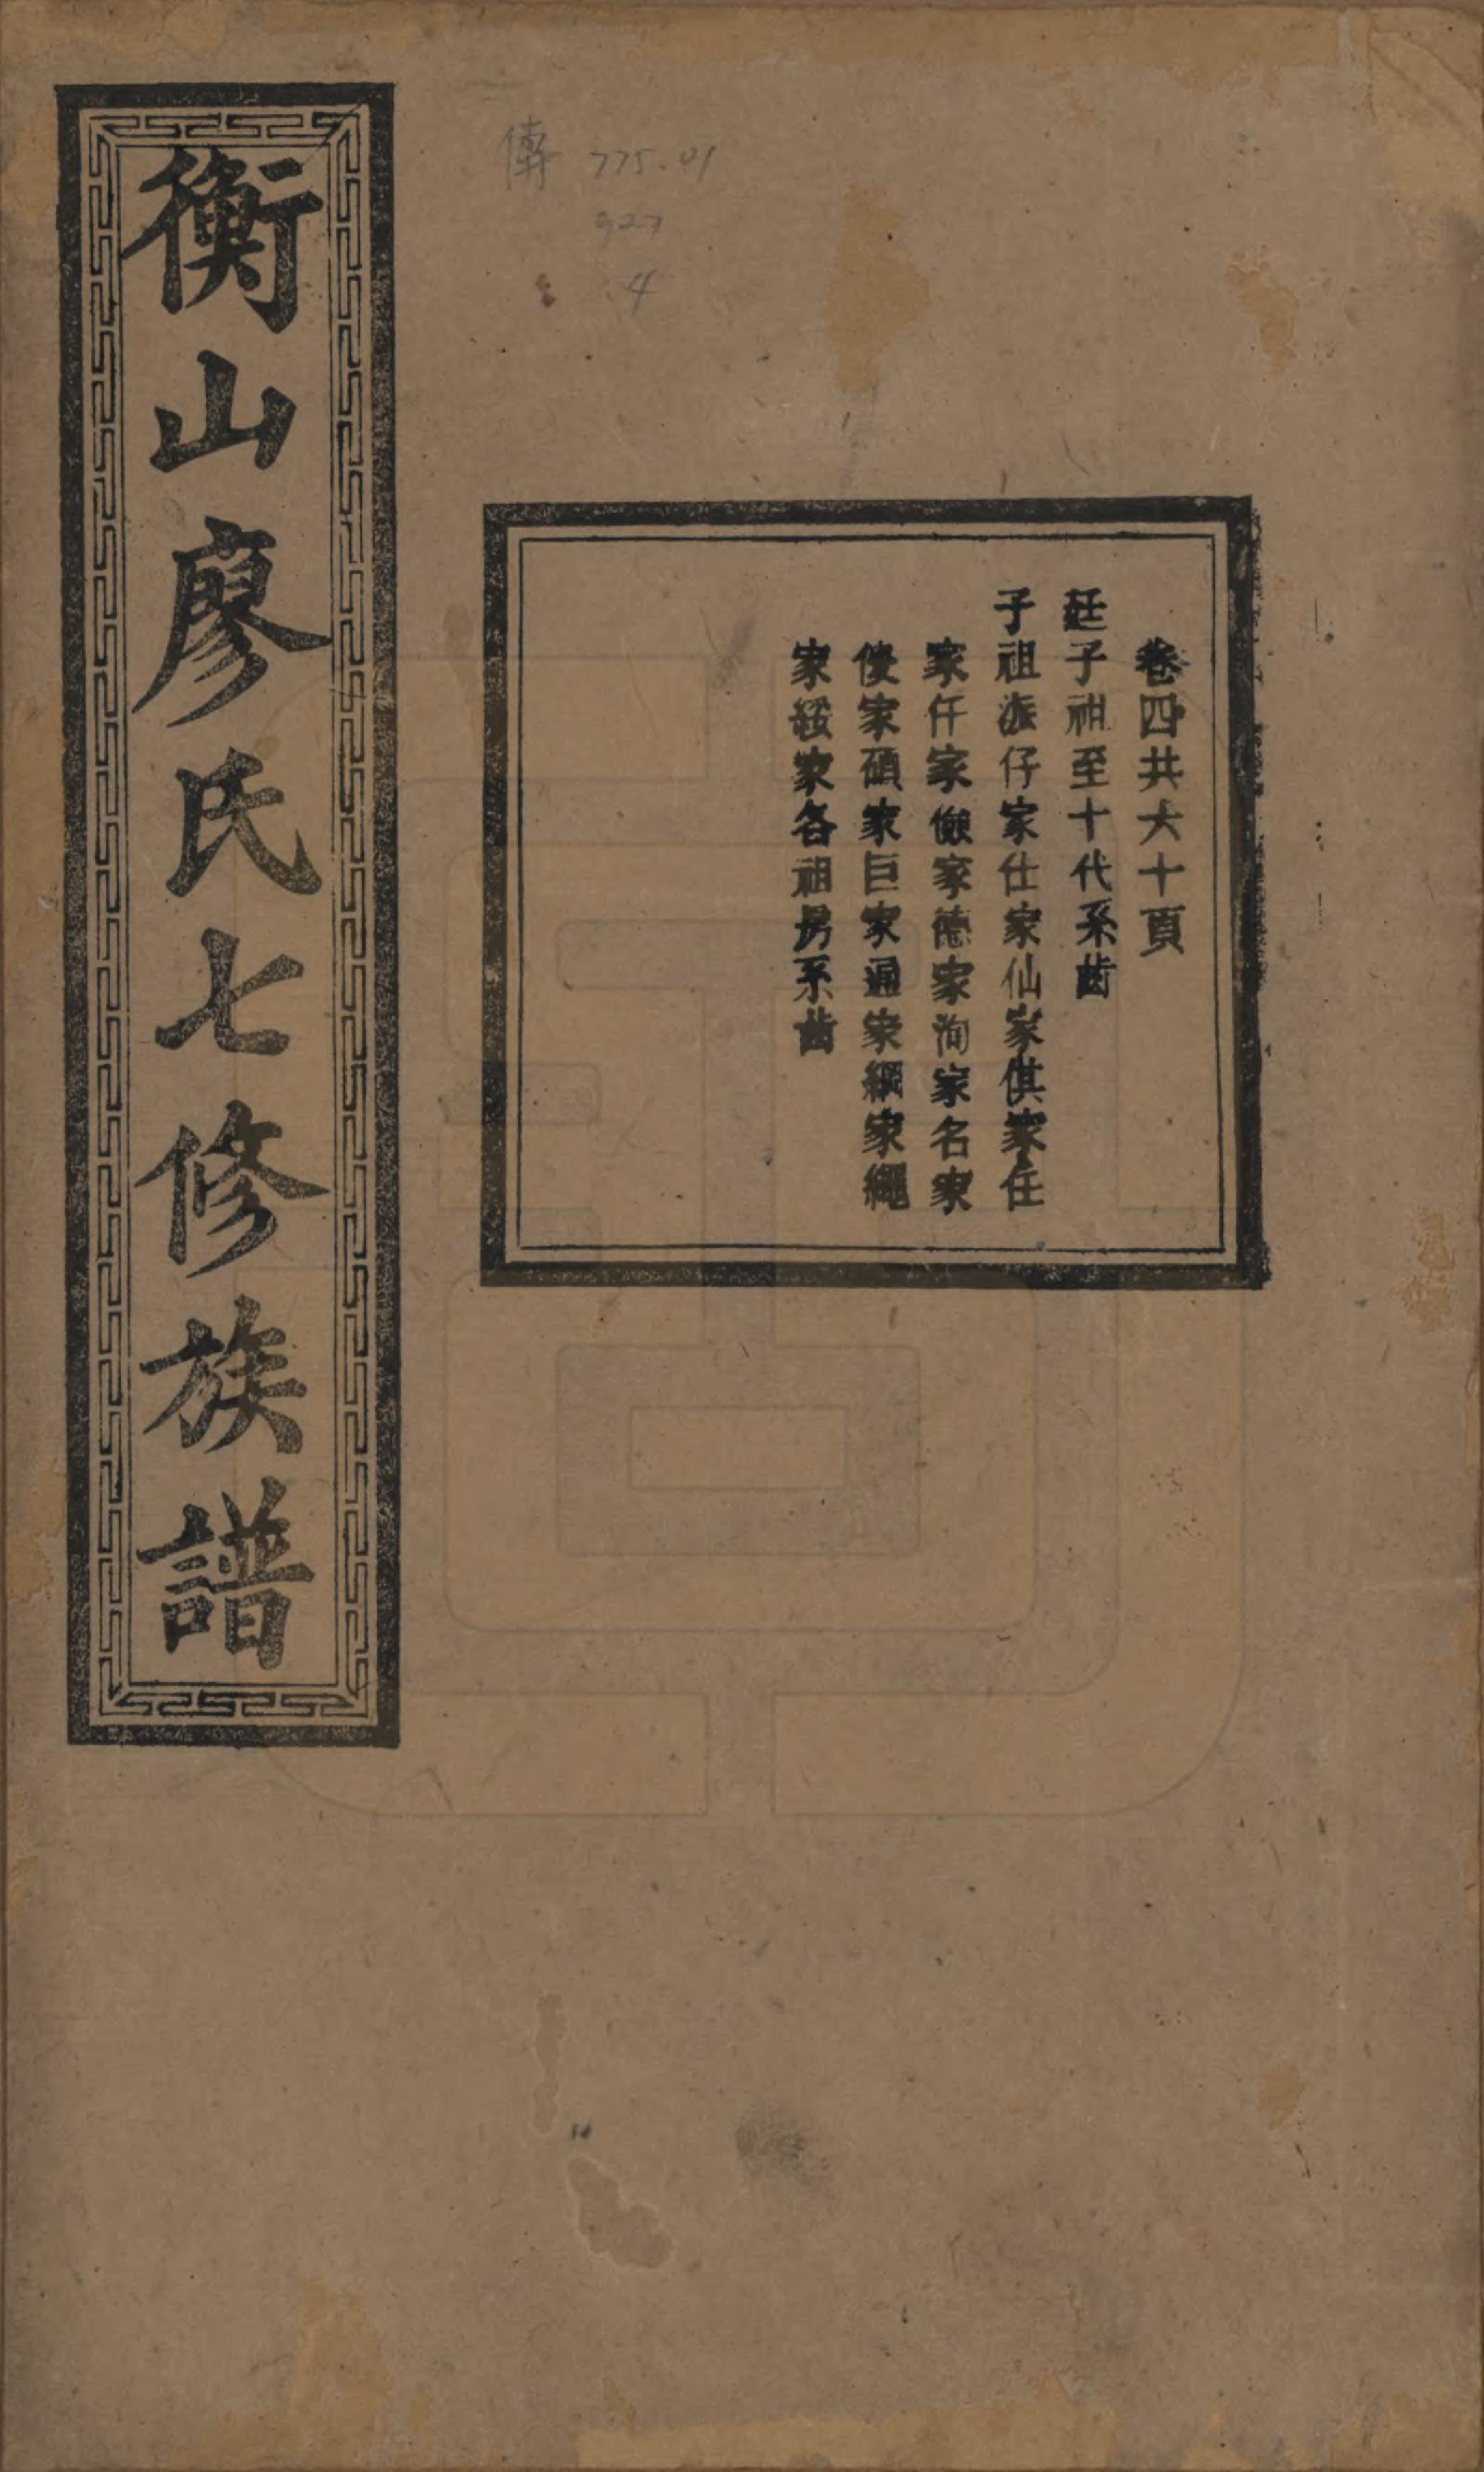 卷四共六十頁
廷子祖至十代系齒
子祖派仔家仕家仙家倛家任
家仟家儉家德家洵家名家
家碩家巨家通家綱家繩
家綏家各祖房系齒
衡山廖氏七修族譜
傳 775.01
927
4